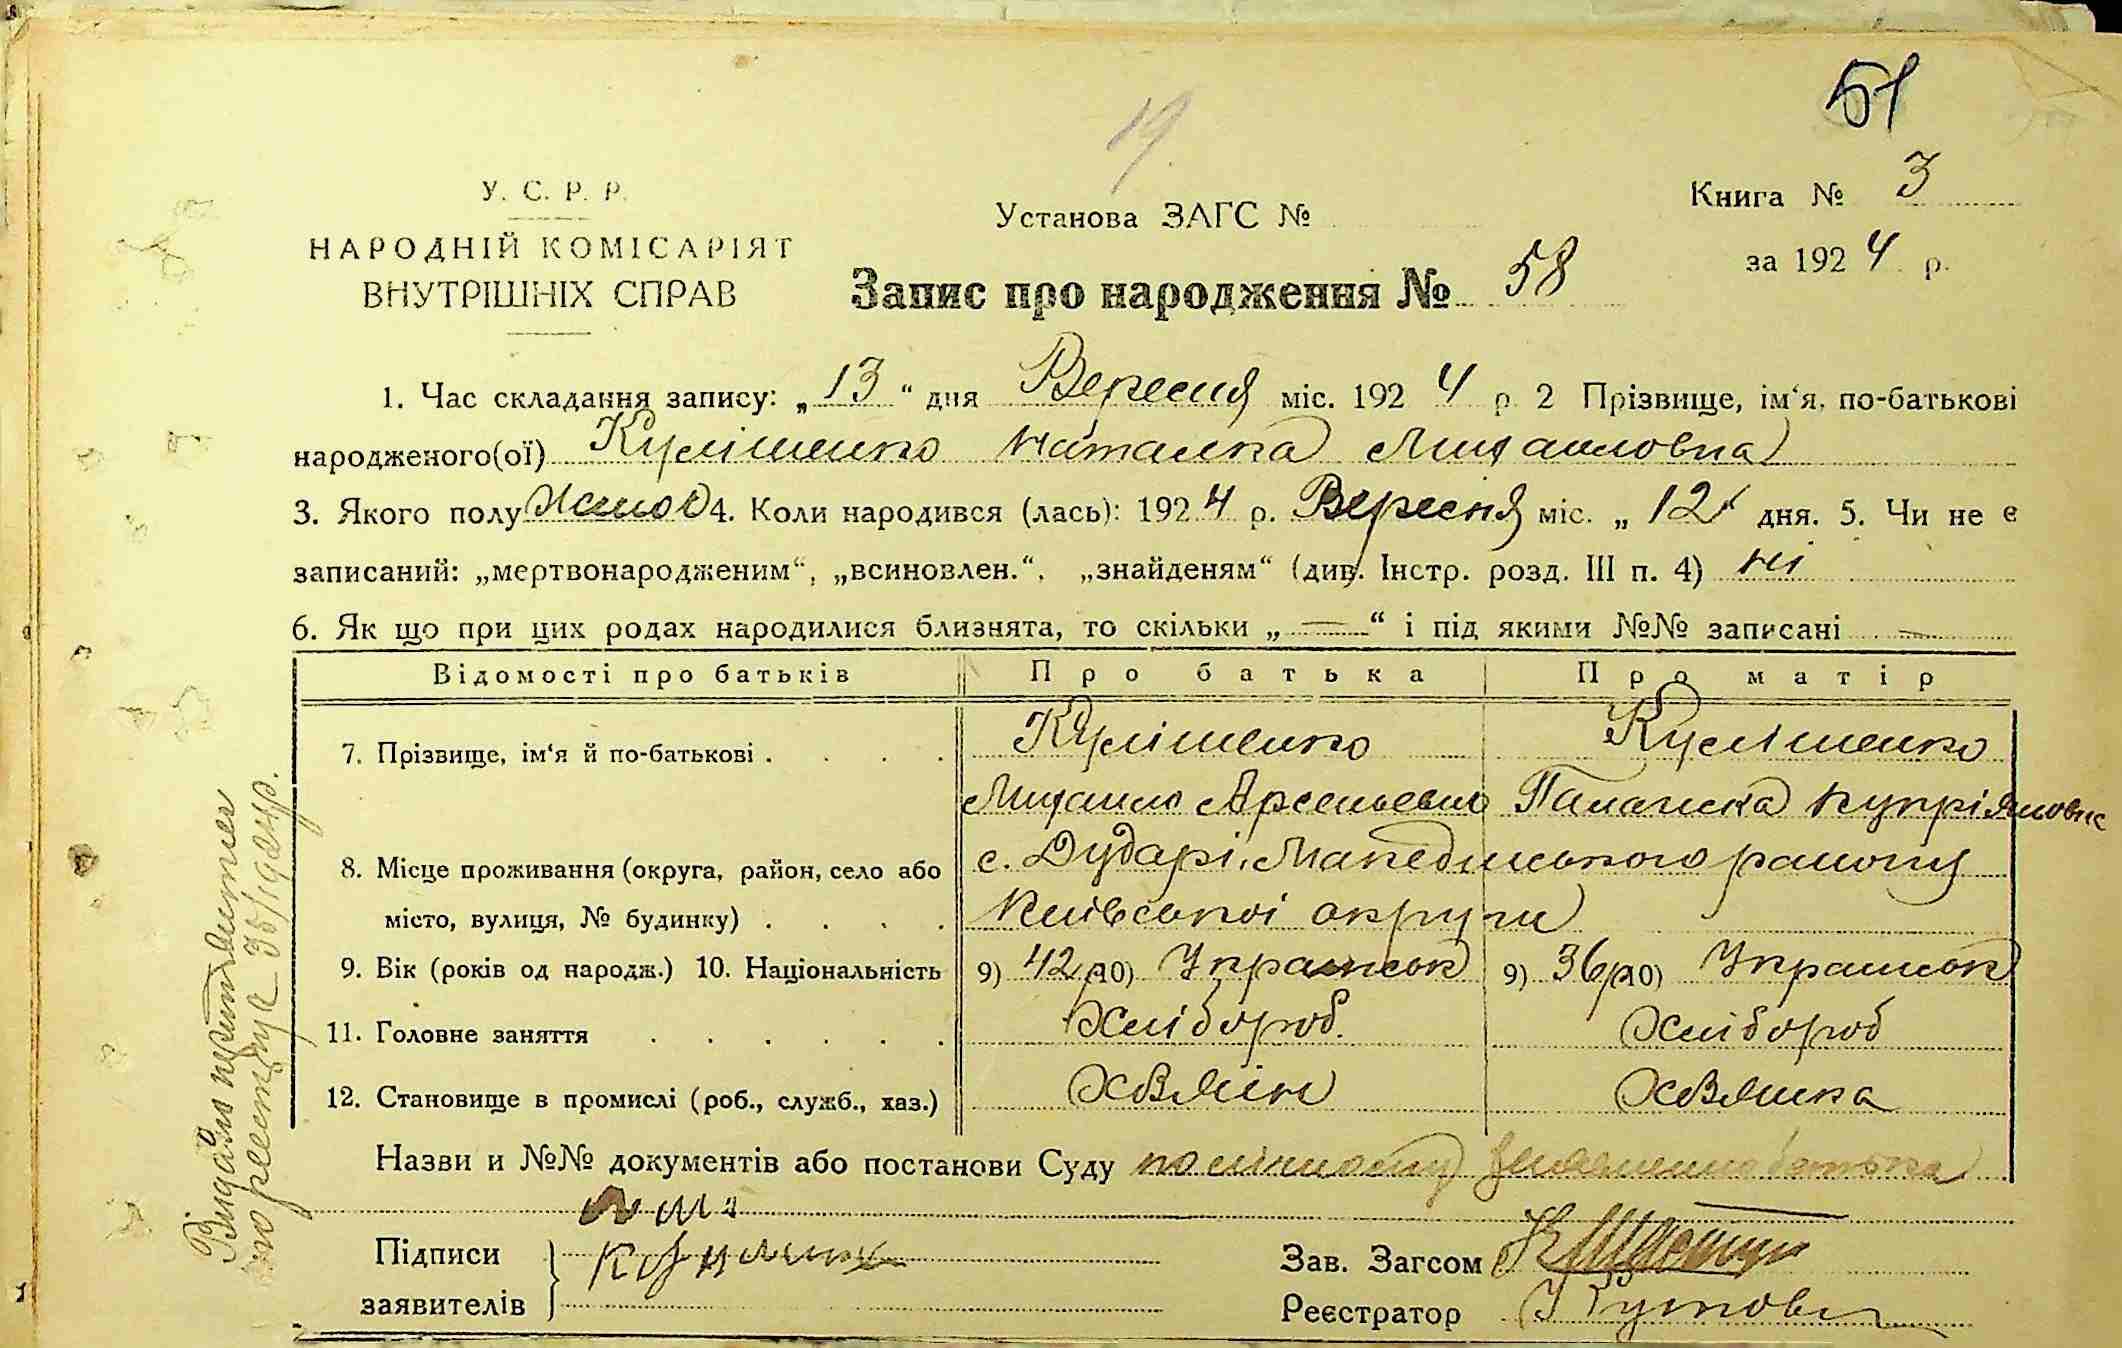 51
19.
У. С. Р. Р.
НАРОДНІЙ КОМІСАРІЯТ
ВНУТРІШНІХ СПРАВ
Установа ЗАГС №
Книга № 3
за 1924 р.
Запис про народження № 58
1. Час складання запису: „13“ дня Вересня міс. 1924 р. 2 Прізвище, ім‘я, по-батькові
народженого(ої) Кулішенко Наталка Михайловна
3. Якого полу Жіноч 4. Коли народився (лась): 1924 р. Вересня міс. „12“ дня. 5. Чи не є
записаний: „мертвонародженим“, „всиновлен.“, „знайденям“ (див. Інстр. розд. III п. 4) ні
6. Як що при цих родах народилися близнята, то скільки „—“ і під якими №№ записані —
Відомості про батьків Про батька Про матір
7. Прізвище, ім‘я й по-батькові . . . . Кулішенко Кулішенко
Михаило Арсеньевич Палажка Купріяновна
8. Місце проживання (округа, район, село або с. Дударі, Македонського району
місто, вулиця, № будинку) . . . . Київської округи
9. Вік (років од народж.) 10. Національність 9) 42 р 10) Українськ 9) 36 р 10) Українськ
11. Головне заняття . . . . . . Хлібороб. Хлібороб
12. Становище в промислі (роб., служб., хаз.) Хазяін Хазяика
Назви и №№ документів або постанови Суду по батька
Підписи
заявителів
Зав. Загсом
Реєстратор
Видано
по реєстру 35/1924р.